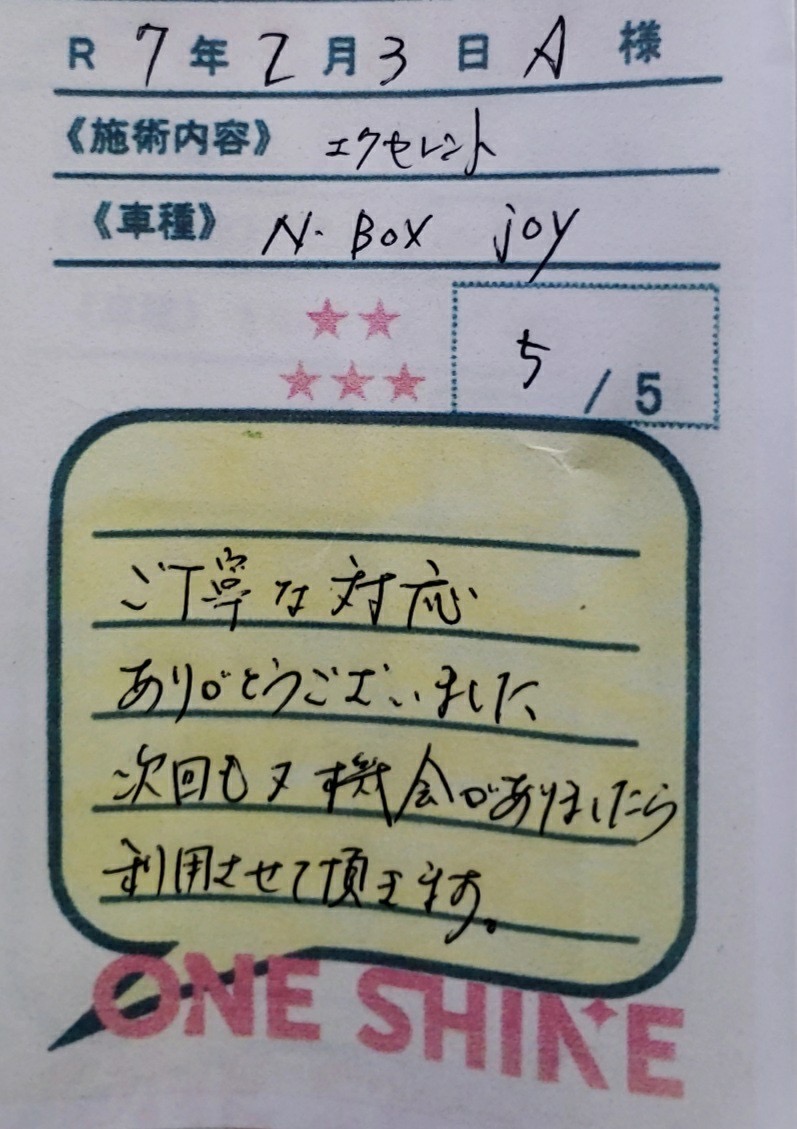 R 7年2月3日 A 様
《施術内容》 エクセレント
《車種》 N-BOX joy
5 / 5
ご丁寧な対応
ありがとうございました
次回も又機会がありましたら
利用させて頂きます。
ONE SHINE